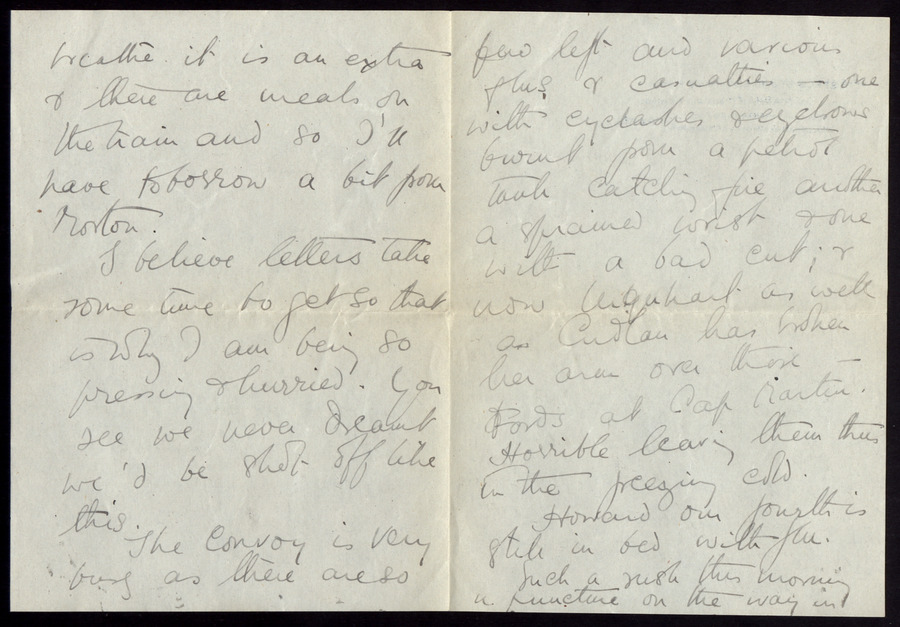 breathe it is an extra
& there are meals on
the train and so I'll
have tobosrow a bit from
Norton.
I believe letters take
some time to get so that
is why I am being so
pressing & hurried. You
see we never dreamt
we'd be shot off like
this.
The Convoy is very
busy as there are so
few left and various
flus & casualties – one
with eyelashes & eyebrows
burnt from a petrol
tank catching fire another
a sprained wrist & one
with a bad cut; &
now Urquhart as well
as Cudlan has broken
her arm over those –
Fords at Cap Martin.
Horrible leaving them thus
in the freezing cold.
Howard our fourth is
still in bed with flu.
Such a rush this morning
a puncture on the way in